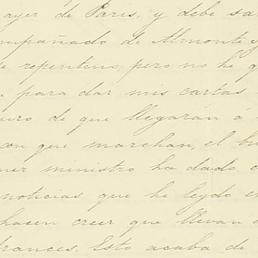 ayer de Paris, y debe sa
mpañado de Almonte y
e repentens, pero no he q
para dar mis cartas
uro de que llegarán á
con que marchan, el
ner ministro ha dado
noticias que he leydo en
hacen creer que llevan
frances. Esto acaba de